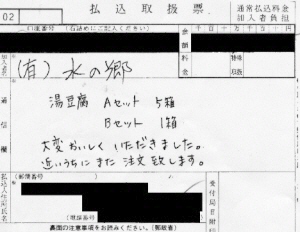 02
払込取扱票
通常払込料金
加入者負担
口座番号
(右詰めにご記入ください)
金額
加入者名
(有)水の郷
料金
特殊取扱
通信欄
湯豆腐 Aセット 5箱
Bセット 1箱
大変おいしくいただきました。
近いうちにまた注文致します。
払込人住所氏名
(郵便番号)
(電話番号)
受付局日附印
裏面の注意事項をお読みください。(郵政省)